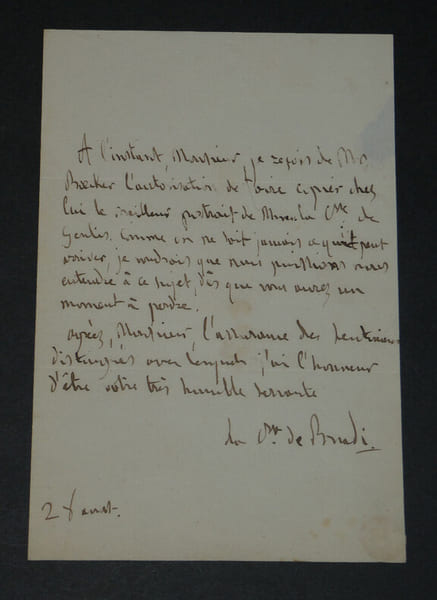 A l'instant, Monsieur, je reçois de Mr
Bœcker l'autorisation de faire copier chez
lui le meilleur portrait de Mme la Csse de
Genlis. Comme on ne sait jamais ce qui peut
arriver, je voudrais que nous puissions nous
entendre à ce sujet, dès que vous aurez un
moment à perdre.
agréez, Monsieur, l'assurance des sentiments
distingués avec lesquels j'ai l'honneur
d'être votre très humble servante
la Csse de Bradi.
28 août.